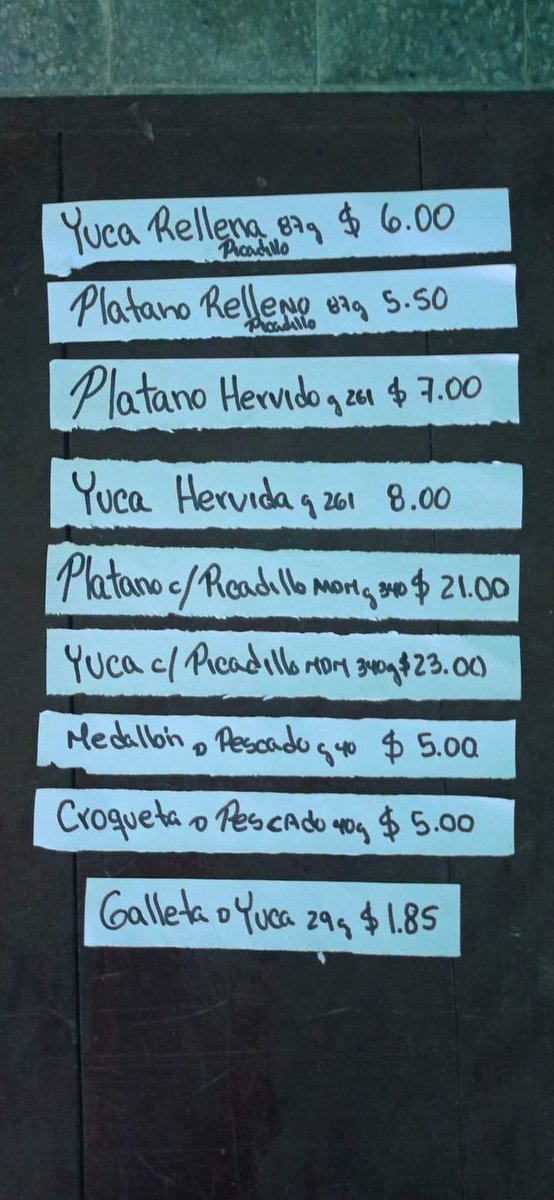 Yuca Rellena 87g $ 6.00
Picadillo
Platano Relleno 87g 5.50
Picadillo
Platano Hervido g 261 $ 7.00
Yuca Hervida g 261 8.00
Platano c/Picadillo MDM g 340 $ 21.00
Yuca c/ Picadillo MDM 340g $23.00
Medallón D Pescado g 40 $ 5.00
Croqueta D PESCADO 40g $ 5.00
Galleta D Yuca 29g $ 1.85